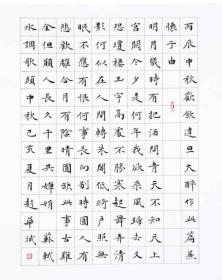 丙辰中秋歡飲達旦大醉作此篇兼
懷子由
明月幾時有把酒問青天不知天上
宮闕今夕是何年我欲乘風歸去又
恐瓊樓玉宇高處不勝寒起舞弄清
影何似在人間轉朱閣低綺戶照無
眠不應有恨何事長向別時圓人有
悲歡離合月有陰晴圓缺此事古難
全但願人長久千里共嬋娟 蘇軾
水調歌頭 中秋 己亥夏月趙華斌